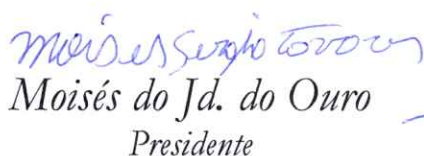 Moisés Sergio Tavares
Moisés do Jd. do Ouro
Presidente